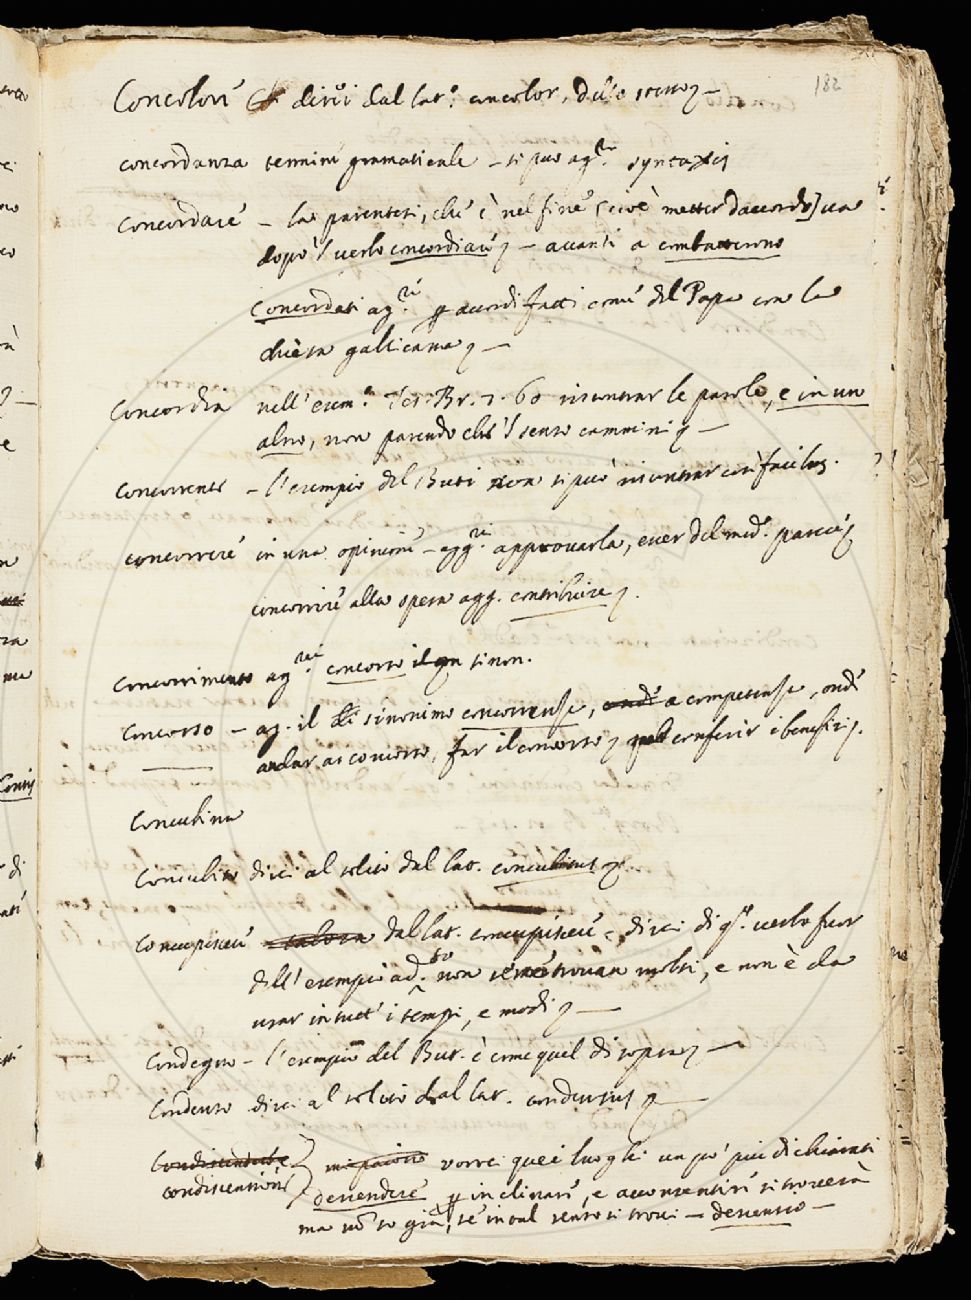 182
Concolore direi dal lat.º concolor, dello stesso
concordanza termine gramaticale – si può ag.re syntaxis
concordare – la parentesi, che è nel fine [cioè metter d'accordo] va
dopo 'l verbo concordiare – avanti a combatterono
Concordati ag.re accordi fatti come del Papa con la
chiesa gallicana –
Concordia nell'esem.º Tes. Br. 7. 60 riscontrar le parole, e in un
altro, non parendo che 'l senso cammini –
concorrente – l'esempio del Buti non si può riscontrar così
concorrere in una opinione – agg.re approvarla, esser del med.º parere
concorrere alla opera agg. contribuire
Concorrimento ag.re concorso il sinon.
Concorso – ag. il sinonimo concorrenza, a competenza, onde
andar a concorso, far il concorso conferir i benefizi.
Concubina
Concubito direi al solito dal lat. concubitus
Concupiscere dal lat. concupiscere – direi di q.o verbo fuor
dell'esempio ad.º non se ne trovan molti, e non è da
usar in tutt' i tempi, e modi –
Condegno – l'esempio del But. è come quel di sopra –
Condenso direi al solito dal lat. condensus –
Condiscendere
condiscensione vorrei quei luoghi un po' più dichiarati
descendere inclinare, e acconsentire si troverà
ma nō so già, se in tal senso si trovi – descensio –